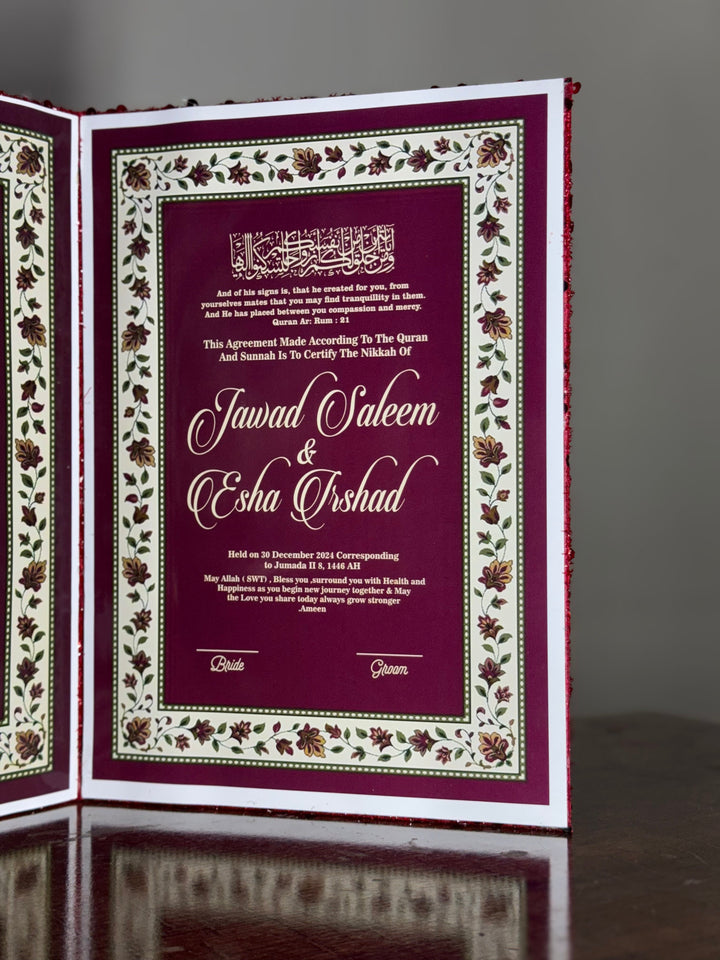 ومن آياته أن خلق لكم من أنفسكم أزواجا لتسكنوا إليها
And of his signs is, that he created for you, from
yourselves mates that you may find tranquillity in them.
And He has placed between you compassion and mercy.
Quran Ar: Rum : 21
This Agreement Made According To The Quran
And Sunnah Is To Certify The Nikkah Of
Jawad Saleem
&
Esha Irshad
Held on 30 December 2024 Corresponding
to Jumada II 8, 1446 AH
May Allah ( SWT) , Bless you ,surround you with Health and
Happiness as you begin new journey together & May
the Love you share today always grow stronger
.Ameen
Bride
Groom